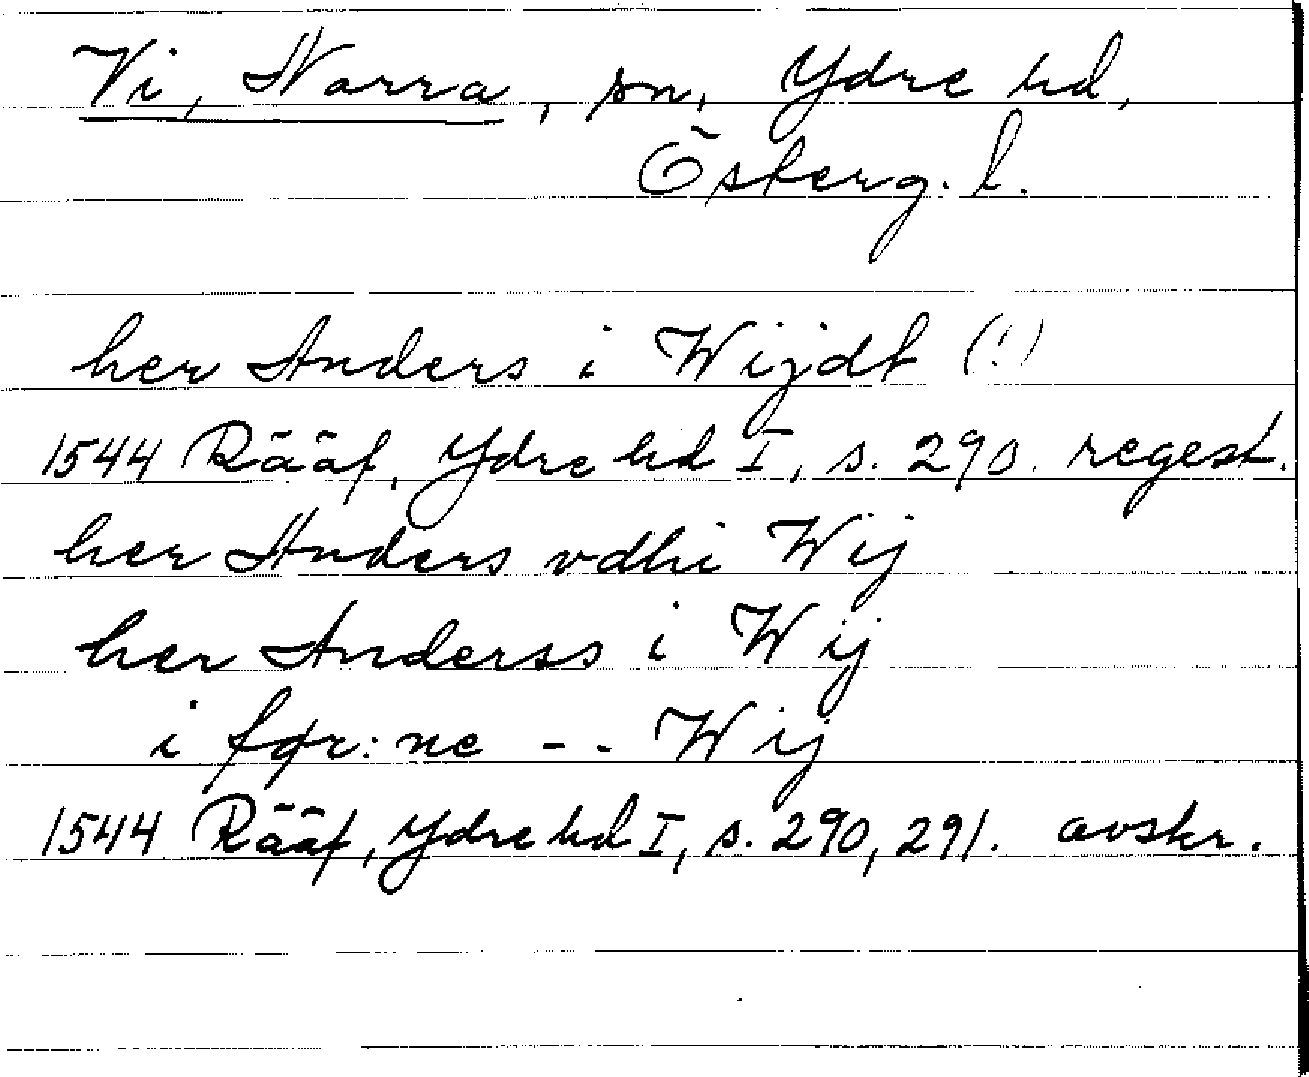 Vi, Norra, sn, Ydre hd,
Österg. l.
her Anders i Wijdt (!)
1544 Rääf, Ydre hd I, s. 290. regest.
her Anders vdhi Wij
her Anderss i Wij
i fqr:ne -- Wij
1544 Rääf, Ydre hd I, s. 290, 291. avskr.